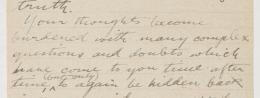 truth.
Your thoughts become
burdened with many complex
questions and doubts which
have come to you time after
(but only)
time, ^ to again be hidden back